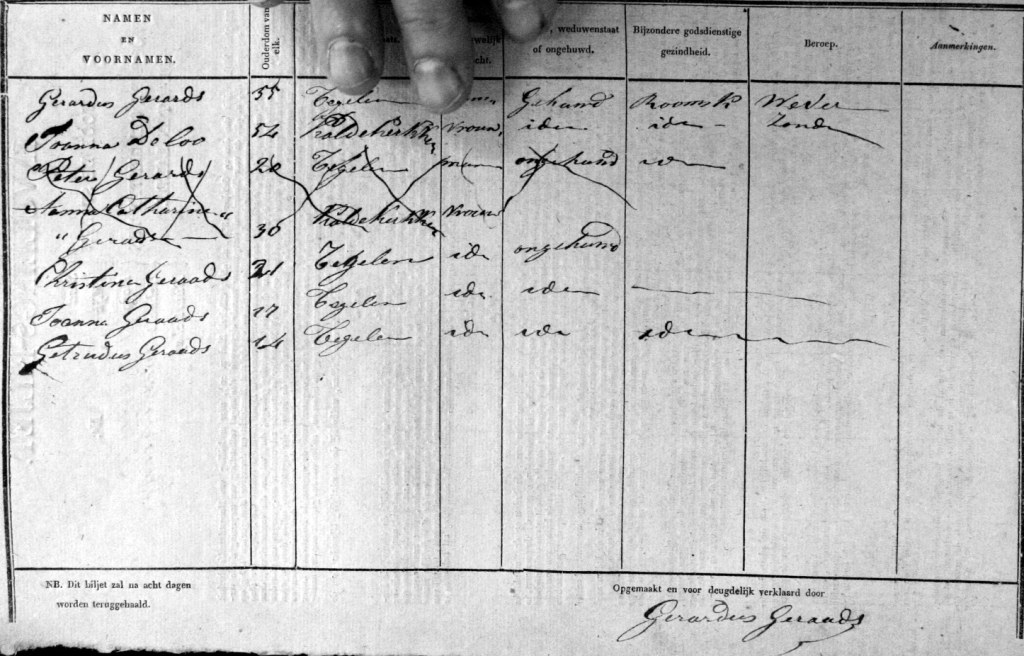 NAMEN EN VOORNAMEN. Ouderdom van elk. weduwenstaat of ongehuwd. Bijzondere godsdienstige gezindheid. Beroep. Aanmerkingen.
Gerardus Gerards 55 Tegelen Gehuud Roomsk Wever
Joanna Deloo 54 Kaldekerkken vrouw, idem idem Zonde
Peter Gerards 28 Tegelen man ongehuud idem
Anna Catharina "
" Gerards 30 Kaldekerkken vrouw
Christina Geraads 21 Tegelen idem ongehuud
Joanna Geraads 17 Tegelen idem idem
Getrudus Geraads 14 Tegelen idem idem idem
NB. Dit biljet zal na acht dagen
worden teruggehaald.
Opgemaakt en voor deugdelijk verklaard door
Gerardus Geraads